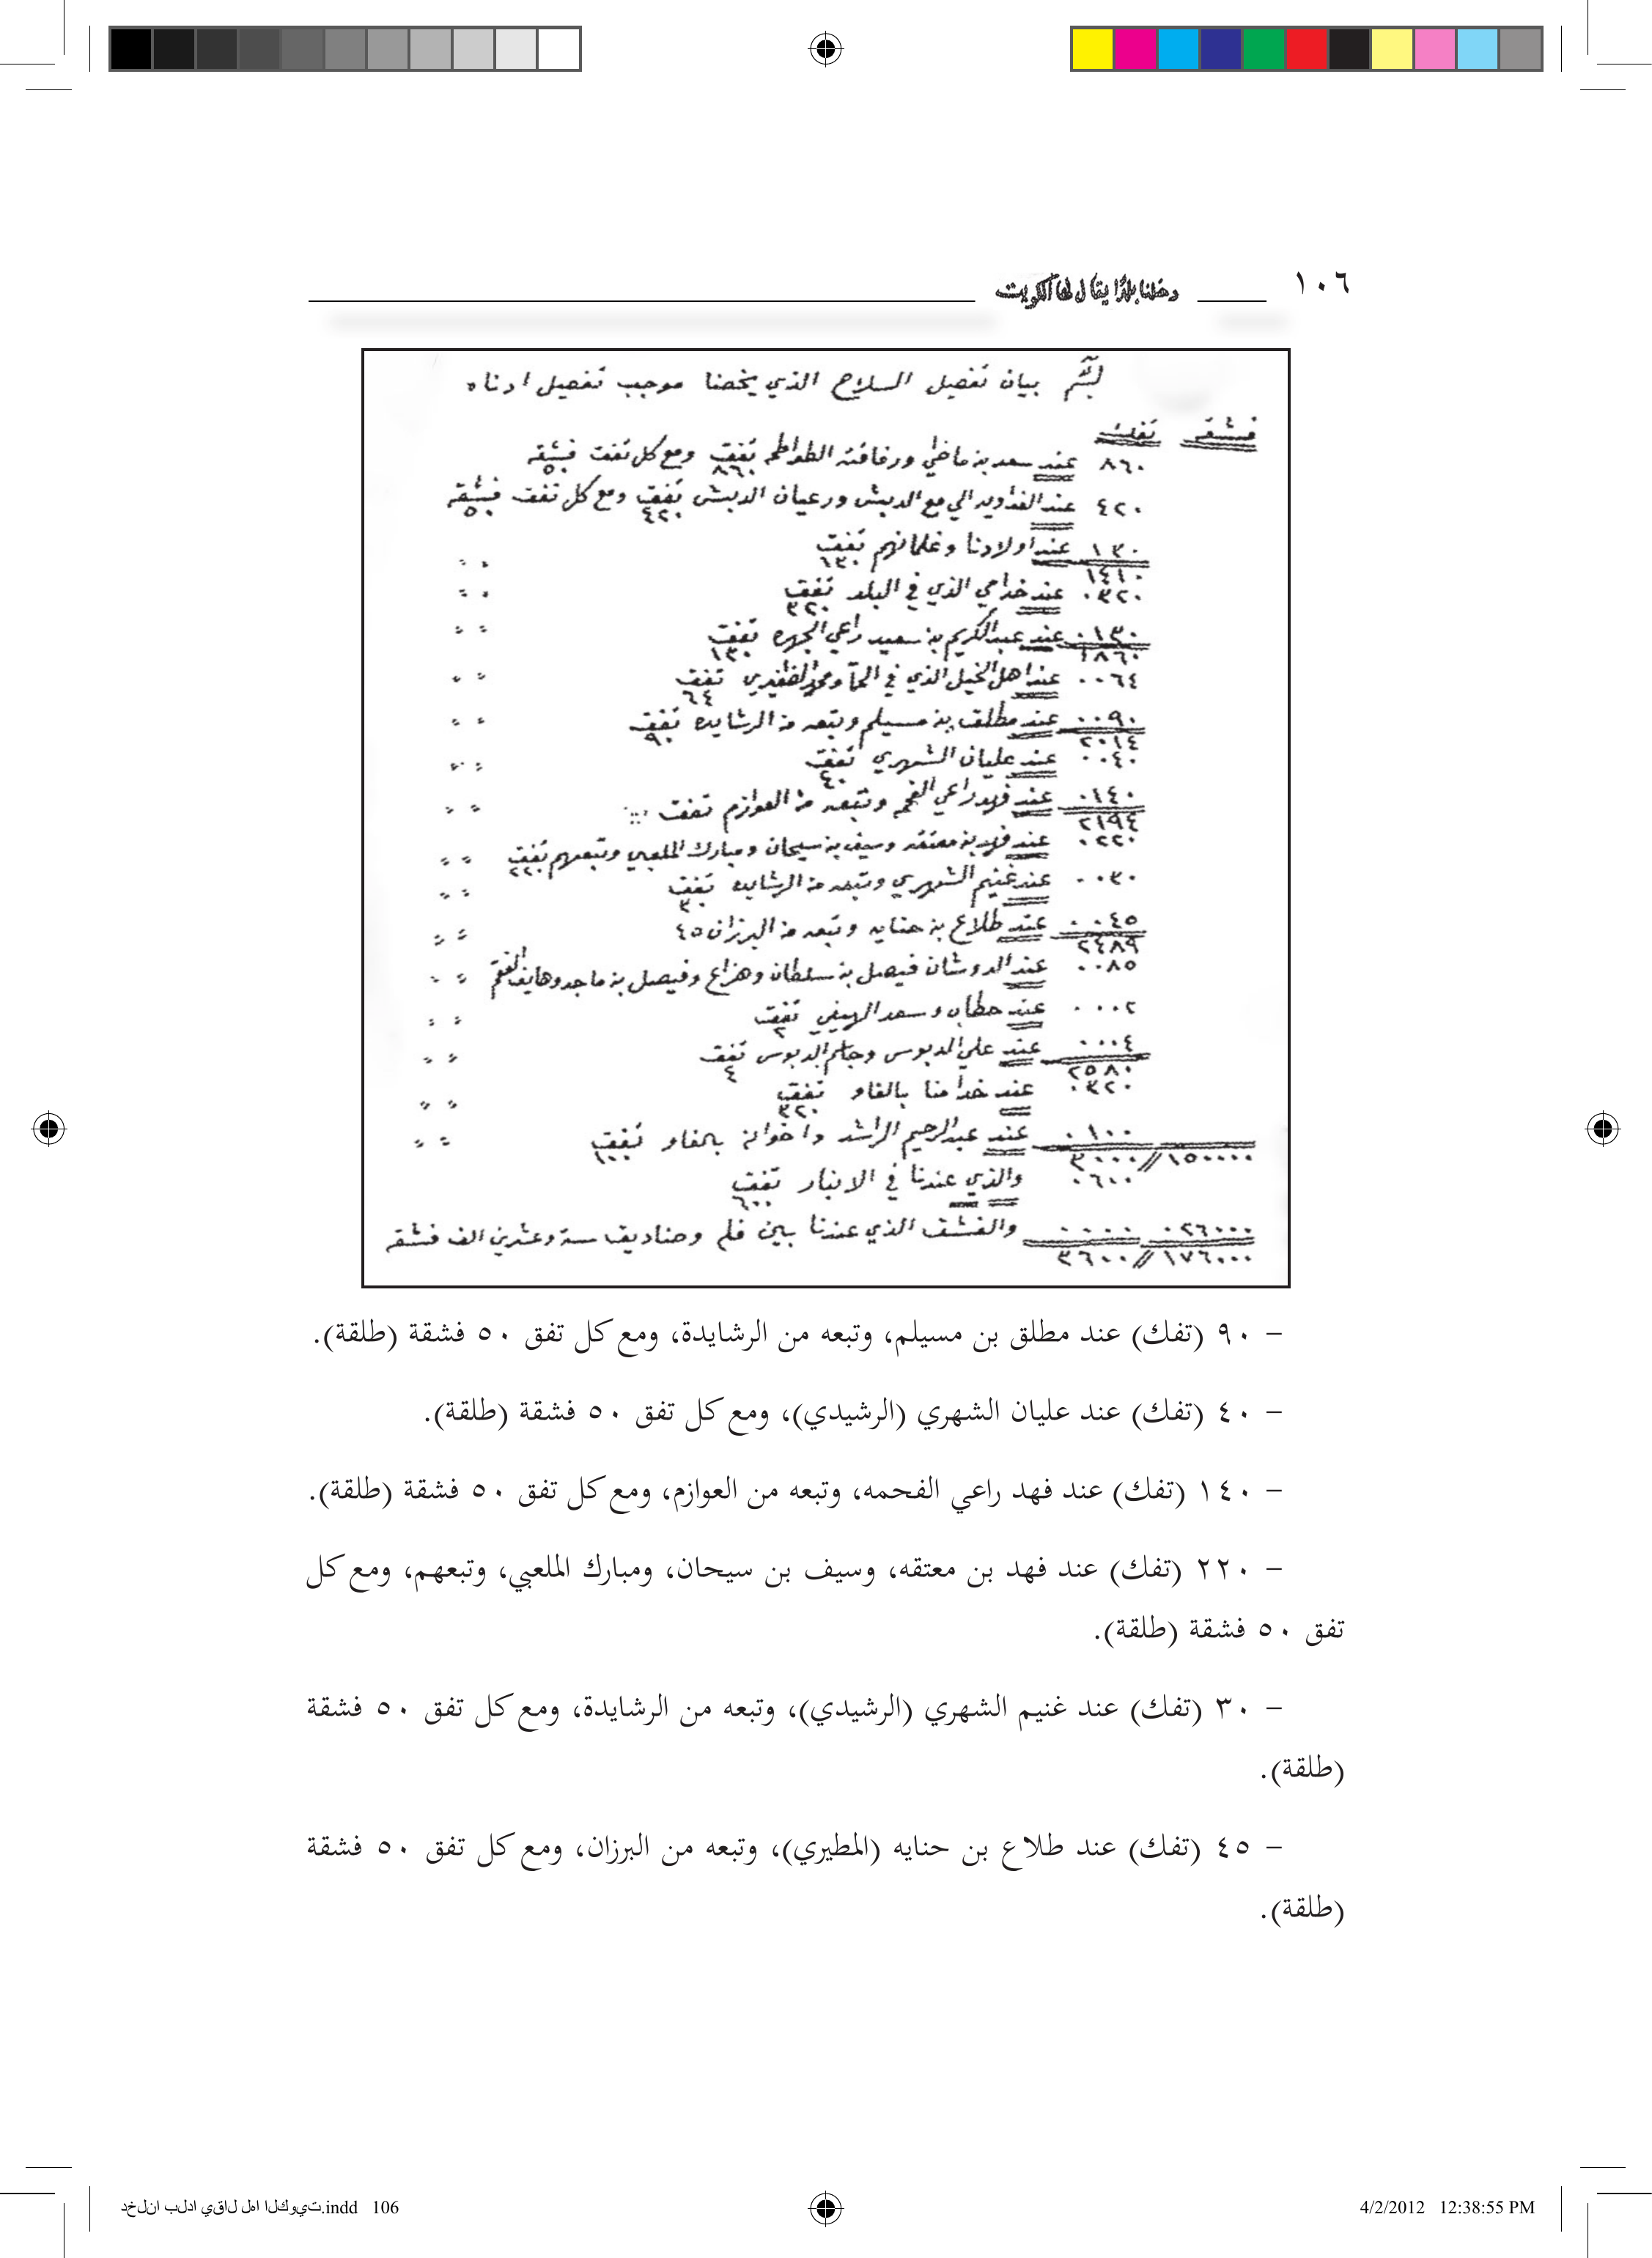 ١٠٦ دخلنا بلدًا يقال لها الكويت
بيان تفصيل السلاح الذي يخصنا موجب تفصيل ادناه
فشقه تفك
٨٦٠ عند سعد بن ماضي ورفاقته الطواطحه تفق ٨٦٠ ومع كل تفق فشقه ٥٠
٤٢٠ عند الفداويه الي مع الدبش ورعيان الدبش تفق ٤٢٠ ومع كل تفق فشقه ٥٠
١٣٠ عند اولادنا وغلمانهم تفق ١٣٠ " "
١٤١٠
٠٣٢٠ عند خدامي الذي في البلد تفق ٣٢٠ " "
٠١٣٠ عند عبدالكريم بن سعيد راعي الجهره تفق ١٣٠ " "
١٨٦٠
٠٠٦٤ عند اهل الخيل الذي في الحآ ومحمد الضفيري تفق ٦٤ " "
٠٠٩٠ عند مطلق بن مسيلم وتبعه من الرشايده تفق ٩٠ " "
٢٠١٤
٠٠٤٠ عند عليان الشهري تفق ٤٠ " "
٠١٤٠ عند فهد راعي الفحمه وتبعه من العوازم تفق " "
٢١٩٤
٠٢٢٠ عند فهد بن معتقه وسيف بن سيحان ومبارك الملعبي وتبعهم تفق ٢٢٠ " "
٠٠٣٠ عند غنيم الشهري وتبعه من الرشايده تفق ٣٠ " "
٠٠٤٥ عند طلاع بن حنايه وتبعه من البرزان ٤٥ " "
٢٤٨٩
٠٠٨٥ عند الدوشان فيصل بن سلطان وهزاع وفيصل بن ماجد وهايف الفغم " "
٠٠٠٢ عند حطاب وسعد الهيفي تفق ٢ " "
٠٠٠٤ عند علي الدبوس وجاسم الدبوس تفق ٤ " "
٢٥٨٠
٠٣٢٠ عند خدامنا بالفاو تفق ٣٢٠ " "
٠١٠٠ عند عبدالرحيم الراشد واخوانه بالفاو تفق ١٠٠ " "
١٥٠٠٠٠ // ٣٠٠٠
٠٦٠٠ والذي عندنا في الانبار تفق ٦٠٠
٠٢٦٠٠٠ ٠٠٠٠ والفشق الذي عندنا بين فلم وصناديق ستة وعشرين الف فشقه
١٧٦٠٠٠ // ٣٦٠٠
– ٩٠ (تفك) عند مطلق بن مسيلم، وتبعه من الرشايدة، ومع كل تفق ٥٠ فشقة (طلقة).
– ٤٠ (تفك) عند عليان الشهري (الرشيدي)، ومع كل تفق ٥٠ فشقة (طلقة).
– ١٤٠ (تفك) عند فهد راعي الفحمه، وتبعه من العوازم، ومع كل تفق ٥٠ فشقة (طلقة).
– ٢٢٠ (تفك) عند فهد بن معتقه، وسيف بن سيحان، ومبارك الملعبي، وتبعهم، ومع كل
تفق ٥٠ فشقة (طلقة).
– ٣٠ (تفك) عند غنيم الشهري (الرشيدي)، وتبعه من الرشايدة، ومع كل تفق ٥٠ فشقة
(طلقة).
– ٤٥ (تفك) عند طلاع بن حنايه (المطيري)، وتبعه من البرزان، ومع كل تفق ٥٠ فشقة
(طلقة).
دخلنا بلدا يقال لها الكويت.indd 106 4/2/2012 12:38:55 PM